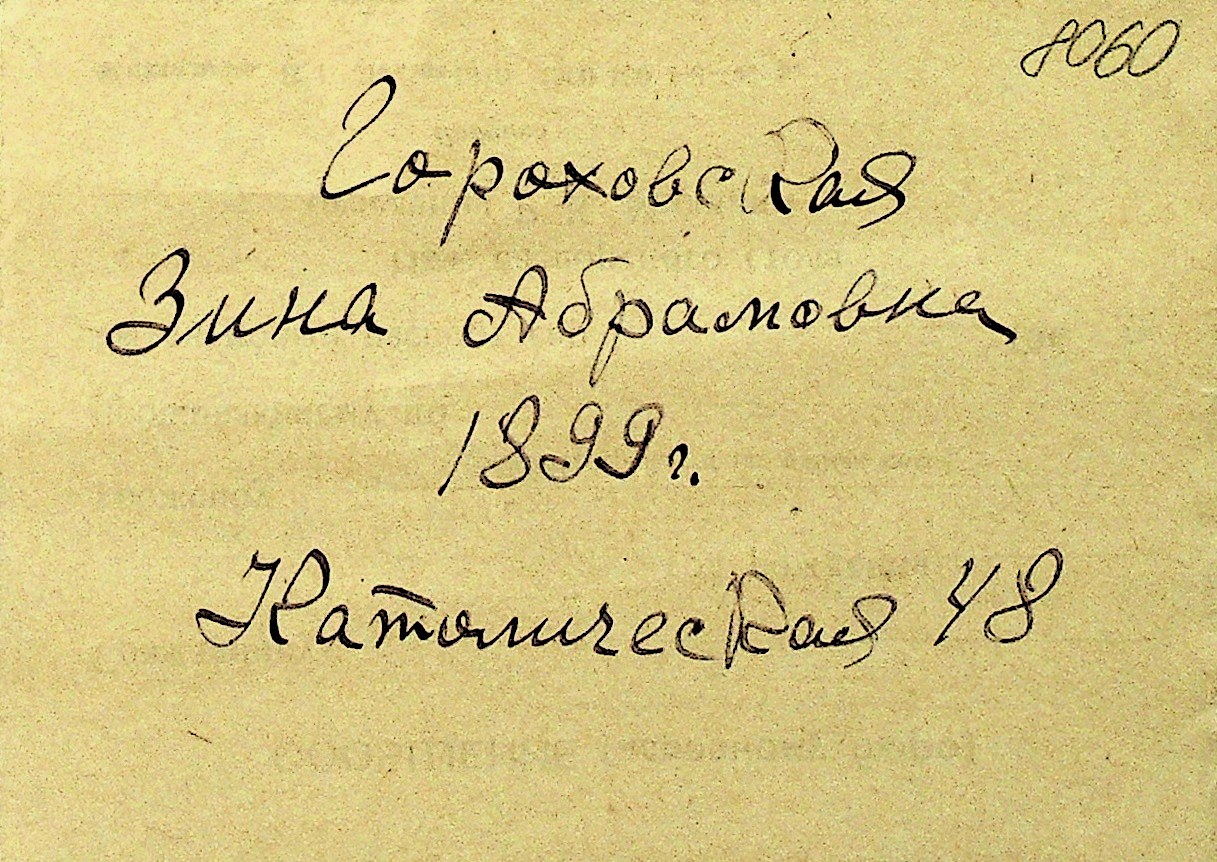 8060
Гороховская
Зина Абрамовна
1899г.
Католическая 48